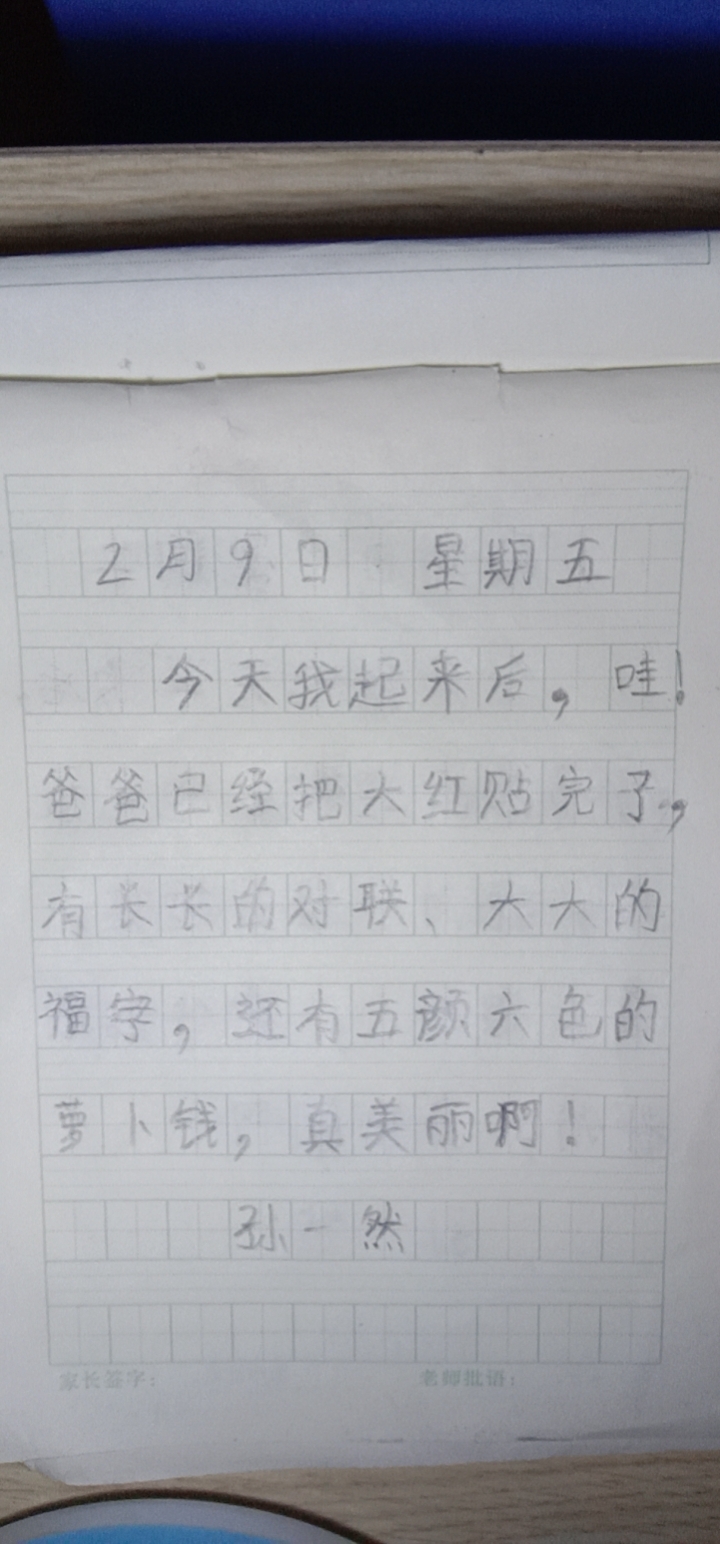 2月9日 星期五
今天我起来后,哇!
爸爸已经把大红贴完了,
有长长的对联、大大的
福字,还有五颜六色的
萝卜钱,真美丽啊!
孙一然
家长签字: 老师批语: